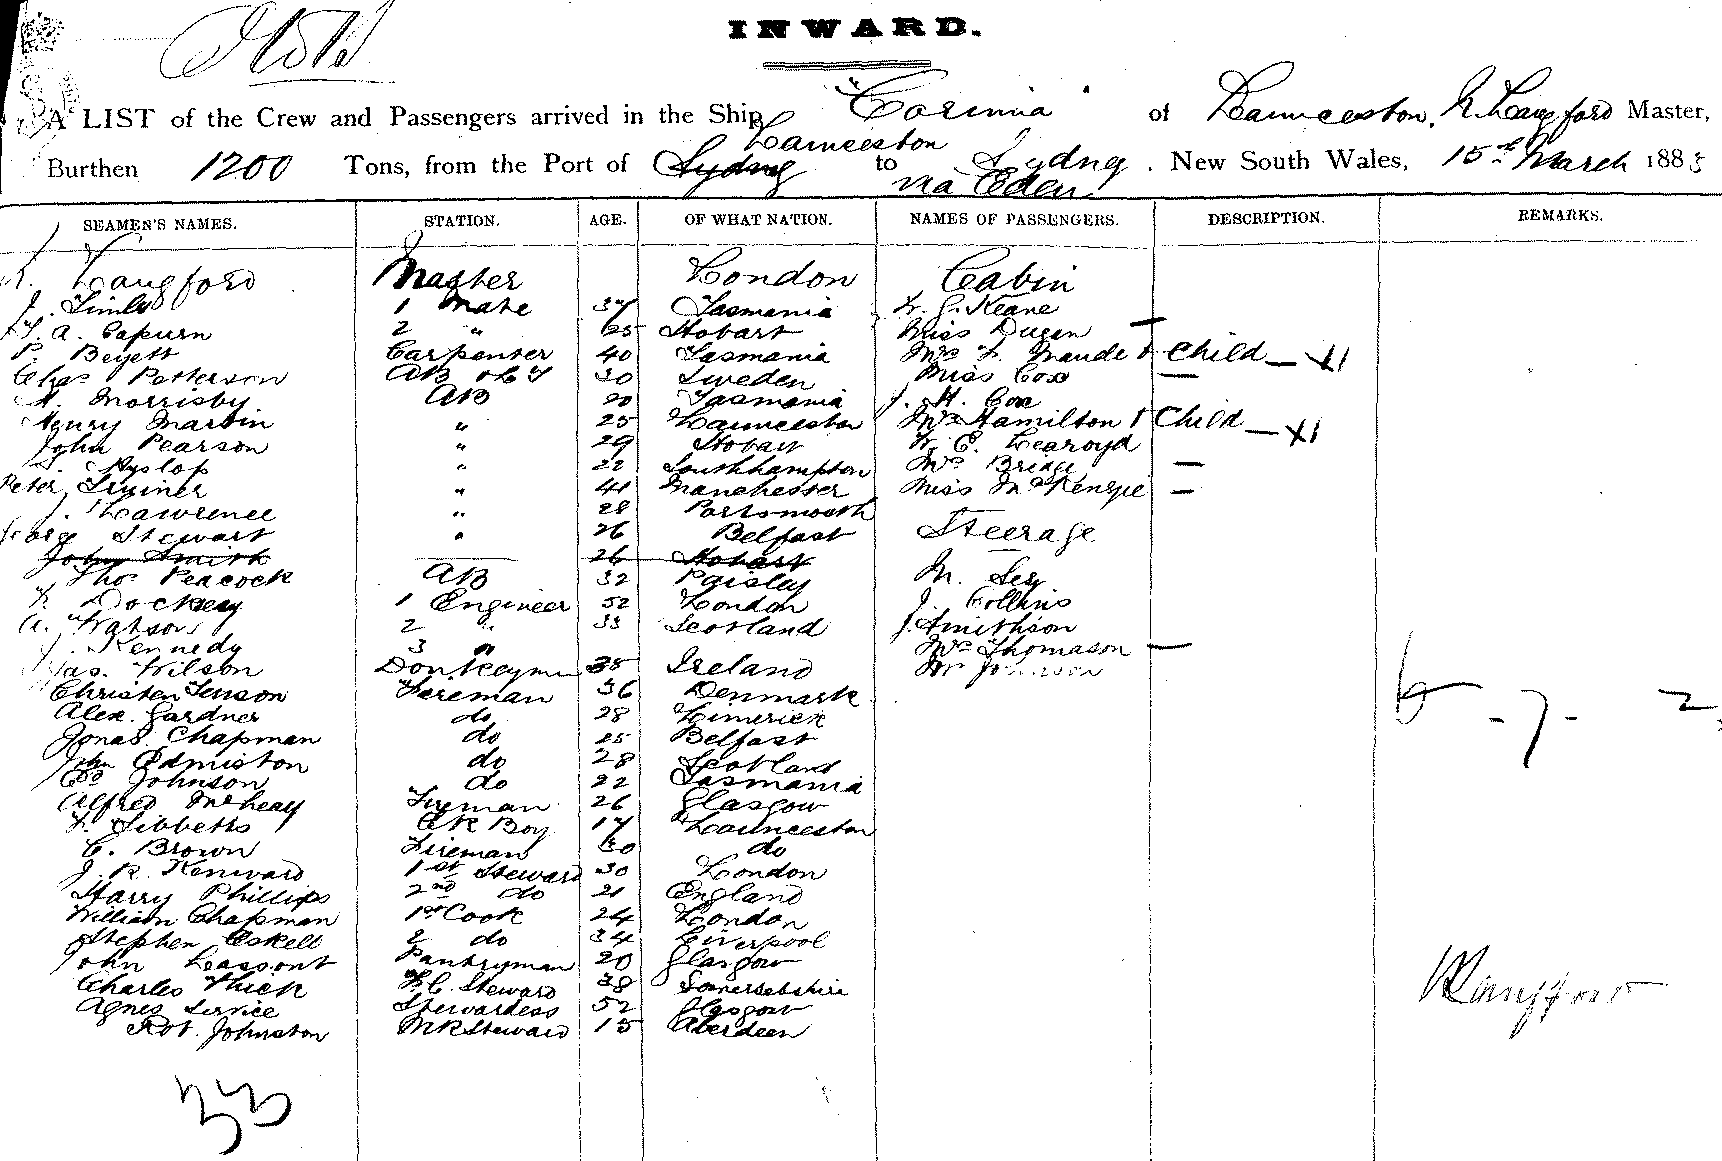 INWARD.
A LIST of the Crew and Passengers arrived in the Ship "Corinna" of Launceston, R. Langford Master,
Launceston
Burthen 1200 Tons, from the Port of Sydney to Sydney. New South Wales, 15th March 1883
via Eden.
SEAMEN'S NAMES. STATION. AGE. OF WHAT NATION. NAMES OF PASSENGERS. DESCRIPTION. REMARKS.
Langford Master London Cabin
J. 1 Mate 37 Tasmania W. G. Keane
A. Capurn 2 " 25 Hobart Miss Dugan —
P. Beyett Carpenter 40 Tasmania Mrs Maude & Child — X1
Chas Patterson AB 30 Sweden Miss Cox —
Morrisby AB 20 Tasmania J. H. Cox
Henry Martin " 25 Launceston Mrs Hamilton & Child — X1
John Pearson " 29 Hobart W. E. Learoyd
Hyslop " 22 Southhampton Mrs Bridge —
Peter " 41 Manchester Miss McKenzie —
J. Lawrence " 28 Portsmouth
George Stewart " 26 Belfast Steerage
John Smith 26 Hobart
Thos Peacock AB 32 Paisley M.
Dockey 1 Engineer 52 London J. Collins
A. Watson 2 " 33 Scotland J. Smithson
J. Kennedy 3 " Mrs Thomason —
Jas. Wilson Donkeyman 38 Ireland Mr Johnson
Christen Jenson Fireman 36 Denmark
Alex. Gardner do 28 Limerick
Jonas Chapman do 25 Belfast
John Edmiston do 28 Scotland
Johnson do 22 Tasmania
Alfred Fireman 26 Glasgow
Tibbetts Boy 17 Launceston
C. Brown Fireman 30 do
J. R. Kenward 1st Steward 30 London
Harry Phillips 2nd do 21 England
William Chapman 1st Cook 24 London
Stephen Eskell 2 do 34 Liverpool
John Pantryman 20 Glasgow
Charles Thick F.C. Steward 38 Somersetshire
Agnes Service Stewardess 52 Glasgow
Rot. Johnston MR Steward 15 Aberdeen
RLangford
33